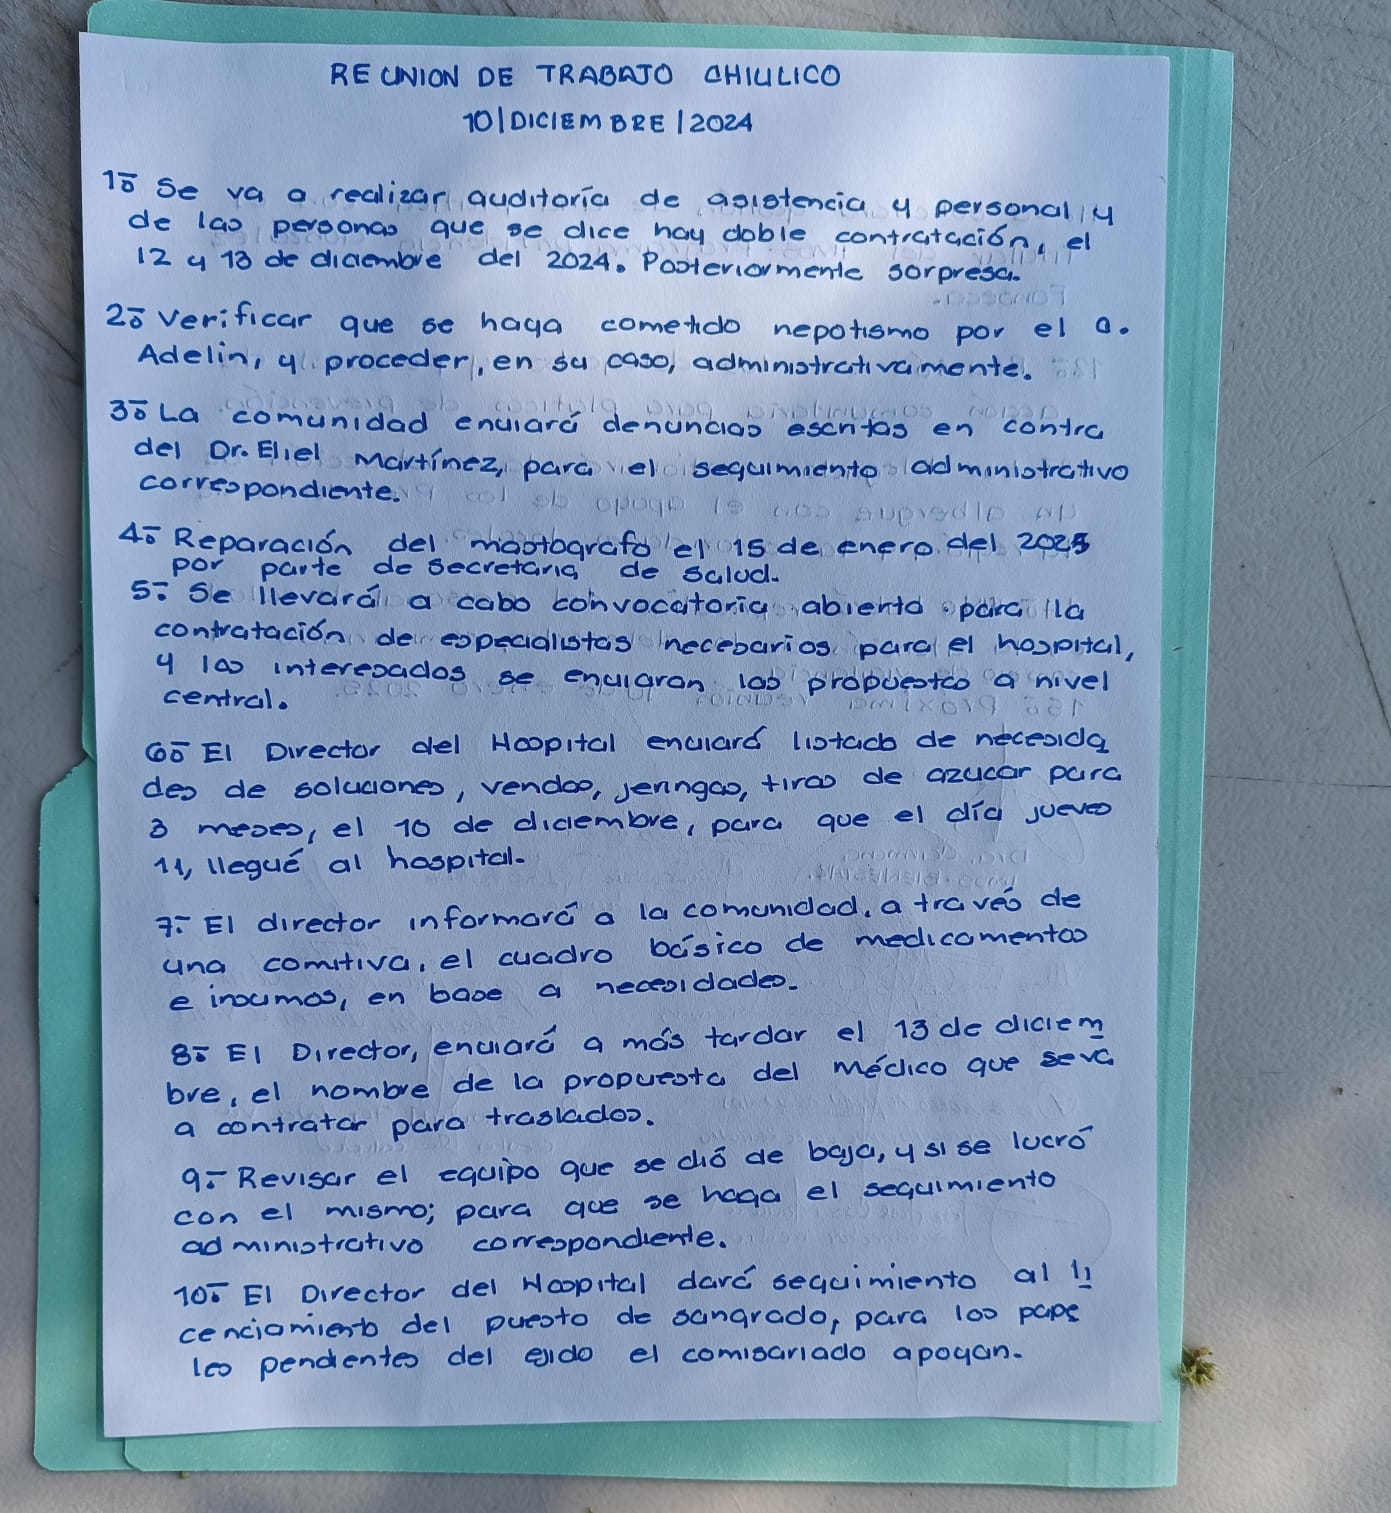 REUNION DE TRABAJO CHIULICO
10|DICIEMBRE|2024
1º Se va a realizar auditoría de asistencia y personal, y
de las personas que se dice hay doble contratación, el
12 y 13 de diciembre del 2024. Posteriormente sorpresa.
2º Verificar que se haya cometido nepotismo por el a.
Adelin, y proceder, en su caso, administrativamente.
3º La comunidad enviará denuncias escritas en contra
del Dr. Eliel Martínez, para el seguimiento administrativo
correspondiente.
4º Reparación del mastografo el 15 de enero del 2025
por parte de Secretaria de Salud.
5º Se llevará a cabo convocatoria abierta para la
contratación de especialistas necesarios para el hospital,
y los interesados se enviaran las propuestas a nivel
central.
6º El Director del Hospital enviará listado de necesida
des de soluciones, vendas, jeringas, tiras de azucar para
3 meses, el 10 de diciembre, para que el día jueves
11, llegué al hospital.
7º El director informará a la comunidad, a través de
una comitiva, el cuadro básico de medicamentos
e insumos, en base a necesidades.
8º El Director, enviará a más tardar el 13 de diciem
bre, el nombre de la propuesta del médico que se va
a contratar para traslados.
9º Revisar el equipo que se dió de baja, y si se lucró
con el mismo; para que se haga el seguimiento
administrativo correspondiente.
10º El Director del Hospital dará seguimiento al li
cenciamiento del puesto de sangrado, para los pape
les pendientes del ejido el comisariado apoyan.